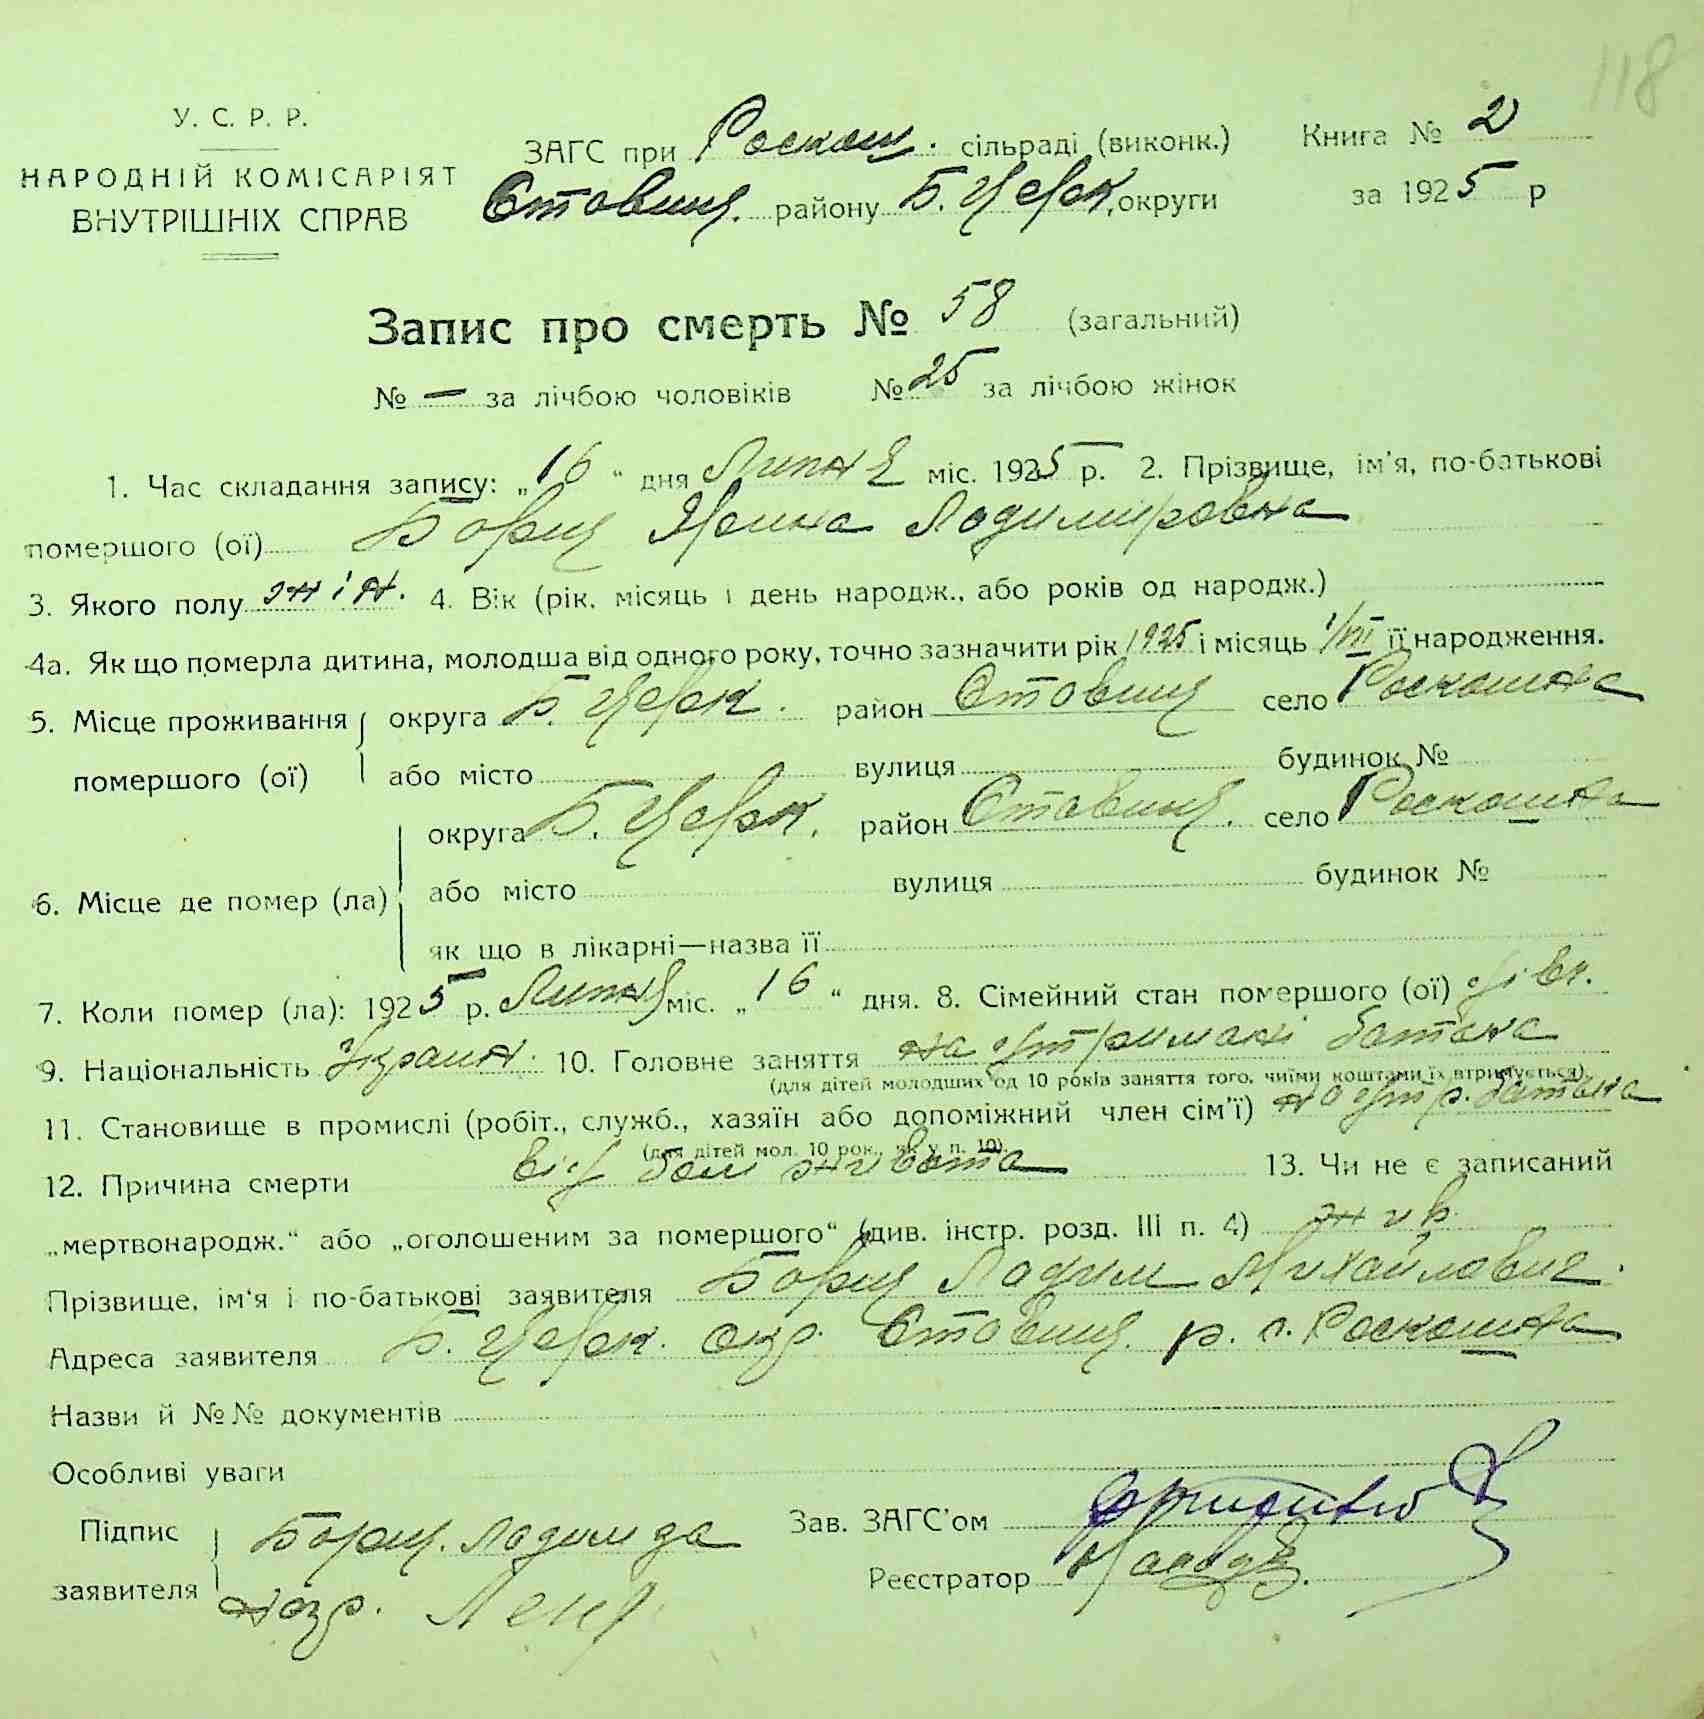 118
У. С. Р. Р.
НАРОДНІЙ КОМІСАРІЯТ
ВНУТРІШНІХ СПРАВ
ЗАГС при Роскош. сільраді (виконк.) Книга № 2
Ставищ. району Б. Церк. округи за 1925 р
Запис про смерть № 58 (загальний)
№ — за лічбою чоловіків № 25 за лічбою жінок
1. Час складання запису: „16“ дня Липня міс. 1925 р. 2. Прізвище, ім'я, по-батькові
помершого (ої) Борщ Ярина Ладимировна
3. Якого полу жін. 4. Вік (рік, місяць і день народж., або років од народж.)
4а. Як що померла дитина, молодша від одного року, точно зазначити рік 1925 і місяць 1/VII її народження.
5. Місце проживання округа Б. Церк. район Ставищ село Роскошна
помершого (ої) або місто вулиця будинок №
округа Б. Церк. район Ставищ. село Роскошна
6. Місце де помер (ла) або місто вулиця будинок №
як що в лікарні—назва її
7. Коли помер (ла): 1925 р. Липня міс. „16“ дня. 8. Сімейний стан помершого (ої) дівч.
9. Національність Україн. 10. Головне заняття на утримані батька
(для дітей молодших од 10 років заняття того, чиїми коштами їх втримується).
11. Становище в промислі (робіт., служб., хазяїн або допоміжний член сім'ї) на утр. батька
(для дітей мол. 10 рок., як у п. 10).
12. Причина смерти від бол живота 13. Чи не є записаний
„мертвонародж.“ або „оголошеним за помершого“ (див. інстр. розд. III п. 4) жив
Прізвище, ім'я і по-батькові заявителя Борщ Ладим Михайлович.
Адреса заявителя Б. Церк. окр. Ставищ. р. с. Роскошна
Назви й №№ документів
Особливі уваги
Підпис Борщ. Ладим за Зав. ЗАГС'ом
заявителя Реєстратор